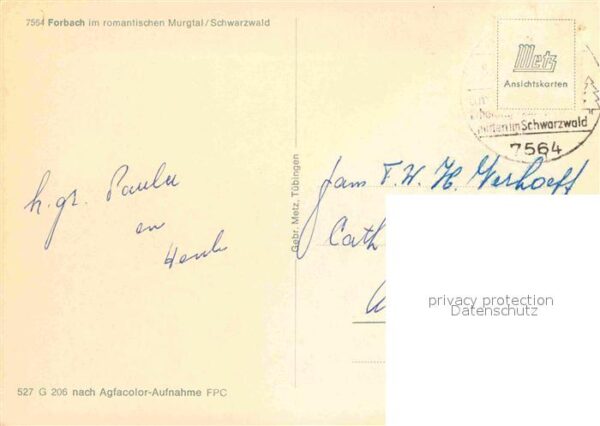 7564 Forbach im romantischen Murgtal/Schwarzwald
Metz
Ansichtskarten
mitten im Schwarzwald
7564
h. gr. Paula
en
Henk
Gebr. Metz, Tübingen
Fam F. W. H. Verhoeff
Cath
privacy protection
Datenschutz
527 G 206 nach Agfacolor-Aufnahme FPC